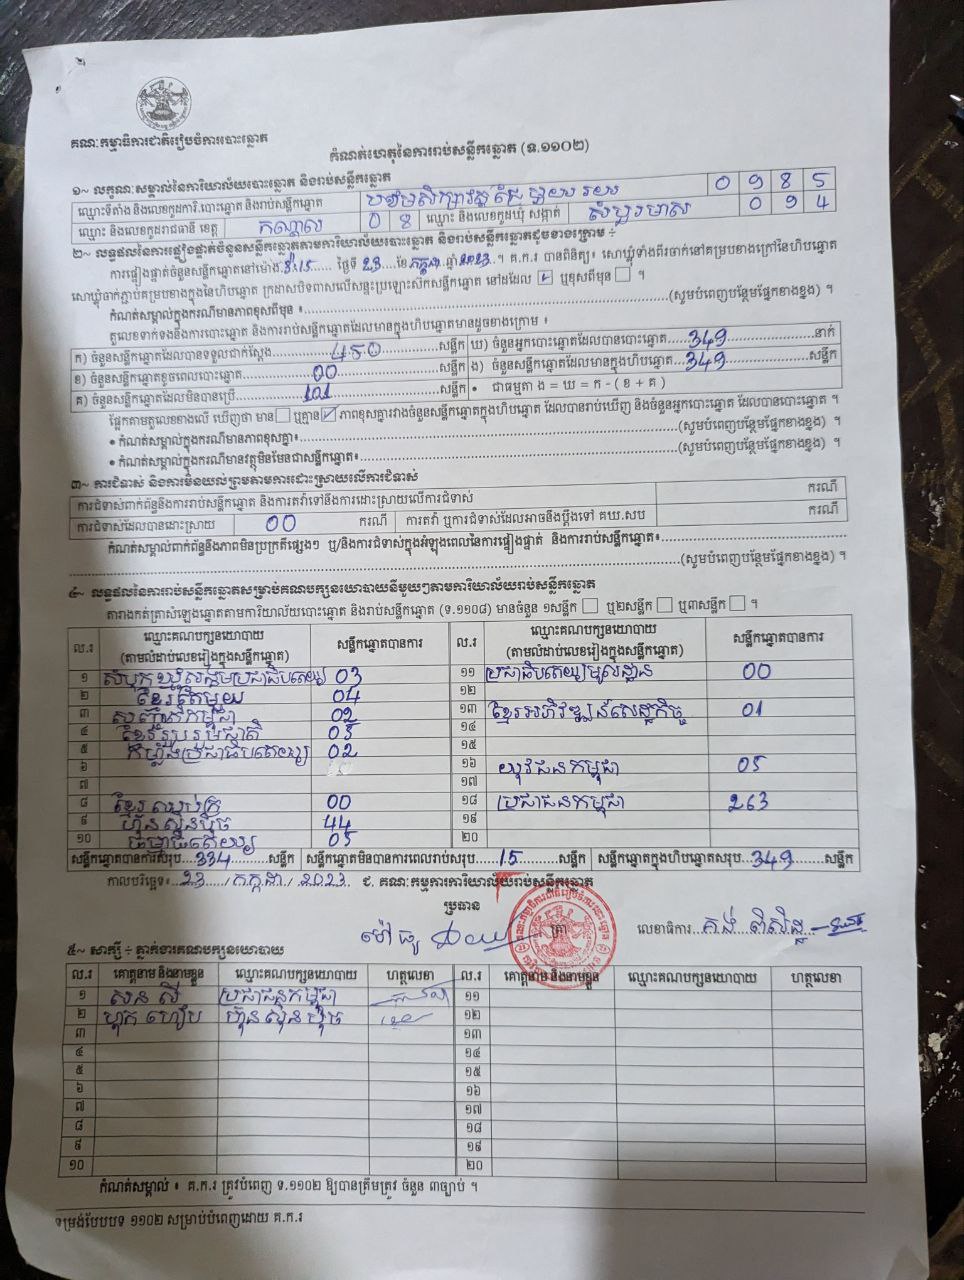 គណៈកម្មាធិការជាតិរៀបចំការបោះឆ្នោត
កំណត់ហេតុនៃការរាប់សន្លឹកឆ្នោត (ទ.១១០២)
១~ លក្ខណៈសម្គាល់នៃការិយាល័យបោះឆ្នោត និងរាប់សន្លឹកឆ្នោត
ឈ្មោះទីតាំង និងលេខកូដរការិ.បោះឆ្នោត និងរាប់សន្លឹកឆ្នោត 0 9 8 5
ឈ្មោះ និងលេខកូដរាជធានី ខេត្ត កណ្តាល 0 8 ឈ្មោះ និងលេខកូដឃុំ សង្កាត់ សំបួរមាស 0 9 4
២~ លទ្ធផលនៃការផ្ទៀងផ្ទាត់ចំនួនសន្លឹកឆ្នោតតាមការិយាល័យបោះឆ្នោត និងរាប់សន្លឹកឆ្នោតដូចខាងក្រោម ÷
ការផ្ទៀងផ្ទាត់ចំនួនសន្លឹកឆ្នោតនៅម៉ោង 3:15 ថ្ងៃទី 23 ខែ កក្កដា ឆ្នាំ 2023 ។ គ.ក.រ បានពិនិត្យ៖ សោឃ្មុំទាំងពីរចាក់នៅគម្របខាងក្រៅនៃហិបឆ្នោត
សោឃ្មុំចាក់ភ្ជាប់គម្របខាងក្នុងនៃហិបឆ្នោត ក្រដាសបិទពាសលើសន្ទះប្រឡោះស៊កសន្លឹកឆ្នោត នៅដដែល ✓ ឬខុសពីមុន ។
កំណត់សម្គាល់ក្នុងករណីមានភាពខុសពីមុន ៖ (សូមបំពេញបន្ថែមផ្នែកខាងខ្នង) ។
តួលេខទាក់ទងនឹងការបោះឆ្នោត និងការរាប់សន្លឹកឆ្នោតដែលមានក្នុងហិបឆ្នោតមានដូចខាងក្រោម ៖
ក) ចំនួនសន្លឹកឆ្នោតដែលបានទទួលជាក់ស្តែង 450 សន្លឹក ឃ) ចំនួនអ្នកបោះឆ្នោតដែលបានបោះឆ្នោត 349 នាក់
ខ) ចំនួនសន្លឹកឆ្នោតខូចពេលបោះឆ្នោត 00 សន្លឹក ង) ចំនួនសន្លឹកឆ្នោតដែលមានក្នុងហិបឆ្នោត 349 សន្លឹក
គ) ចំនួនសន្លឹកឆ្នោតដែលមិនបានប្រើ 101 សន្លឹក • ជាធម្មតា ង = ឃ = ក - ( ខ + គ )
ផ្អែកតាមតួលេខខាងលើ ឃើញថា មាន ឬគ្មាន ✓ ភាពខុសគ្នារវាងចំនួនសន្លឹកឆ្នោតក្នុងហិបឆ្នោត ដែលបានរាប់ឃើញ និងចំនួនអ្នកបោះឆ្នោត ដែលបានបោះឆ្នោត ។
• កំណត់សម្គាល់ក្នុងករណីមានភាពខុសគ្នា៖ (សូមបំពេញបន្ថែមផ្នែកខាងខ្នង) ។
• កំណត់សម្គាល់ក្នុងករណីមានវត្ថុមិនមែនជាសន្លឹកឆ្នោត៖ (សូមបំពេញបន្ថែមផ្នែកខាងខ្នង) ។
៣~ ការជំទាស់ និងការមិនយល់ព្រមតាមការដោះស្រាយលើការជំទាស់
ការជំទាស់ពាក់ព័ន្ធនឹងការរាប់សន្លឹកឆ្នោត និងការតវ៉ាទៅនឹងការដោះស្រាយលើការជំទាស់ ករណី
ការជំទាស់ដែលបានដោះស្រាយ 00 ករណី ការតវ៉ា ឬការជំទាស់ដែលអាចនឹងប្តឹងទៅ គឃ.សប ករណី
កំណត់សម្គាល់ពាក់ព័ន្ធនឹងភាពមិនប្រក្រតីផ្សេងៗ ឬ/និងការជំទាស់ក្នុងអំឡុងពេលនៃការផ្ទៀងផ្ទាត់ និងការរាប់សន្លឹកឆ្នោត៖
(សូមបំពេញបន្ថែមផ្នែកខាងខ្នង) ។
៤~ លទ្ធផលនៃការរាប់សន្លឹកឆ្នោតសម្រាប់គណបក្សនយោបាយនីមួយៗតាមការិយាល័យរាប់សន្លឹកឆ្នោត
តារាងកត់ត្រាសំឡេងឆ្នោតតាមការិយាល័យបោះឆ្នោត និងរាប់សន្លឹកឆ្នោត (ទ.១១០៨) មានចំនួន ១សន្លឹក ឬ២សន្លឹក ឬ៣សន្លឹក ។
ល.រ ឈ្មោះគណបក្សនយោបាយ (តាមលំដាប់លេខរៀងក្នុងសន្លឹកឆ្នោត) សន្លឹកឆ្នោតបានការ ល.រ ឈ្មោះគណបក្សនយោបាយ (តាមលំដាប់លេខរៀងក្នុងសន្លឹកឆ្នោត) សន្លឹកឆ្នោតបានការ
១ សំបុកឃ្មុំសង្គមប្រជាធិបតេយ្យ 03 ១១ ប្រជាធិបតេយ្យមូលដ្ឋាន 00
២ ខ្មែរតែមួយ 04 ១២
៣ សញ្ជាតិកម្ពុជា 02 ១៣ ខ្មែរអភិវឌ្ឍន៍សេដ្ឋកិច្ច 01
៤ ខ្មែររួបរួមជាតិ 05 ១៤
៥ កម្លាំងប្រជាធិបតេយ្យ 02 ១៥
៦ ១៦ យុវជនកម្ពុជា 05
៧ ១៧
៨ ខ្មែរឈប់ក្រ 00 ១៨ ប្រជាជនកម្ពុជា 263
៩ ហ៊្វុនស៊ិនប៉ិច 44 ១៩
១០ ធម្មាធិបតេយ្យ 05 ២០
សន្លឹកឆ្នោតបានការសរុប 334 សន្លឹក សន្លឹកឆ្នោតមិនបានការពេលរាប់សរុប 15 សន្លឹក សន្លឹកឆ្នោតក្នុងហិបឆ្នោតសរុប 349 សន្លឹក
កាលបរិច្ឆេទ៖ 23 / កក្កដា / 2023 ជ. គណៈកម្មការការិយាល័យរាប់សន្លឹកឆ្នោត
ប្រធាន
ត្រា លេខាធិការ គង់ ពិសិដ្ឋ
៥~ សាក្សី ÷ ភ្នាក់ងារគណបក្សនយោបាយ
ល.រ គោត្តនាម និងនាមខ្លួន ឈ្មោះគណបក្សនយោបាយ ហត្ថលេខា ល.រ គោត្តនាម និងនាមខ្លួន ឈ្មោះគណបក្សនយោបាយ ហត្ថលេខា
១ សន ស៊ី ប្រជាជនកម្ពុជា ១១
២ ហ៊្វុនស៊ិនប៉ិច ១២
៣ ១៣
៤ ១៤
៥ ១៥
៦ ១៦
៧ ១៧
៨ ១៨
៩ ១៩
១០ ២០
កំណត់សម្គាល់ ៖ គ.ក.រ ត្រូវបំពេញ ទ.១១០២ ឱ្យបានត្រឹមត្រូវ ចំនួន ៣ច្បាប់ ។
ទម្រង់បែបបទ ១១០២ សម្រាប់បំពេញដោយ គ.ក.រ